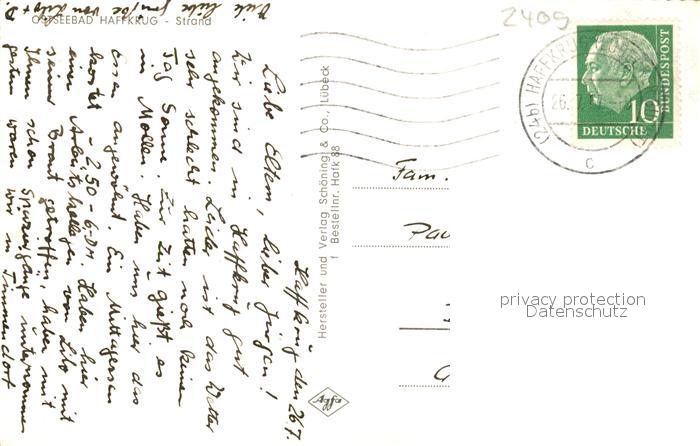 Viele liebe Grüße von Lilo + D.
OSTSEEBAD HAFFKRUG - Strand
Haffkrug den 26.7.
Liebe Eltern, lieber Jürgen!
Wir sind in Haffkrug gut
angekommen. Leider ist das Wetter
sehr schlecht hatten noch keinen
Tag Sonne. Zur Zeit gießt es
in Mollen. Haben uns hier das
Essen angewöhnt. Ein Mittagessen
kostet - 2,50 - 6,- DM. Haben hier
einen Arbeitskollegen von Lilo mit
seiner Braut getroffen, haben mit
Ihnen schon Spaziergänge unternommen
gestern waren wir in Timmendorf
Hersteller und Verlag Schöning & Co., Lübeck
1 Bestellnr. Hafk 88
Agfa
2409
(24b) HAFFKRUG
26.7.
c
10
DEUTSCHE
BUNDESPOST
Fam.
privacy protection
Datenschutz